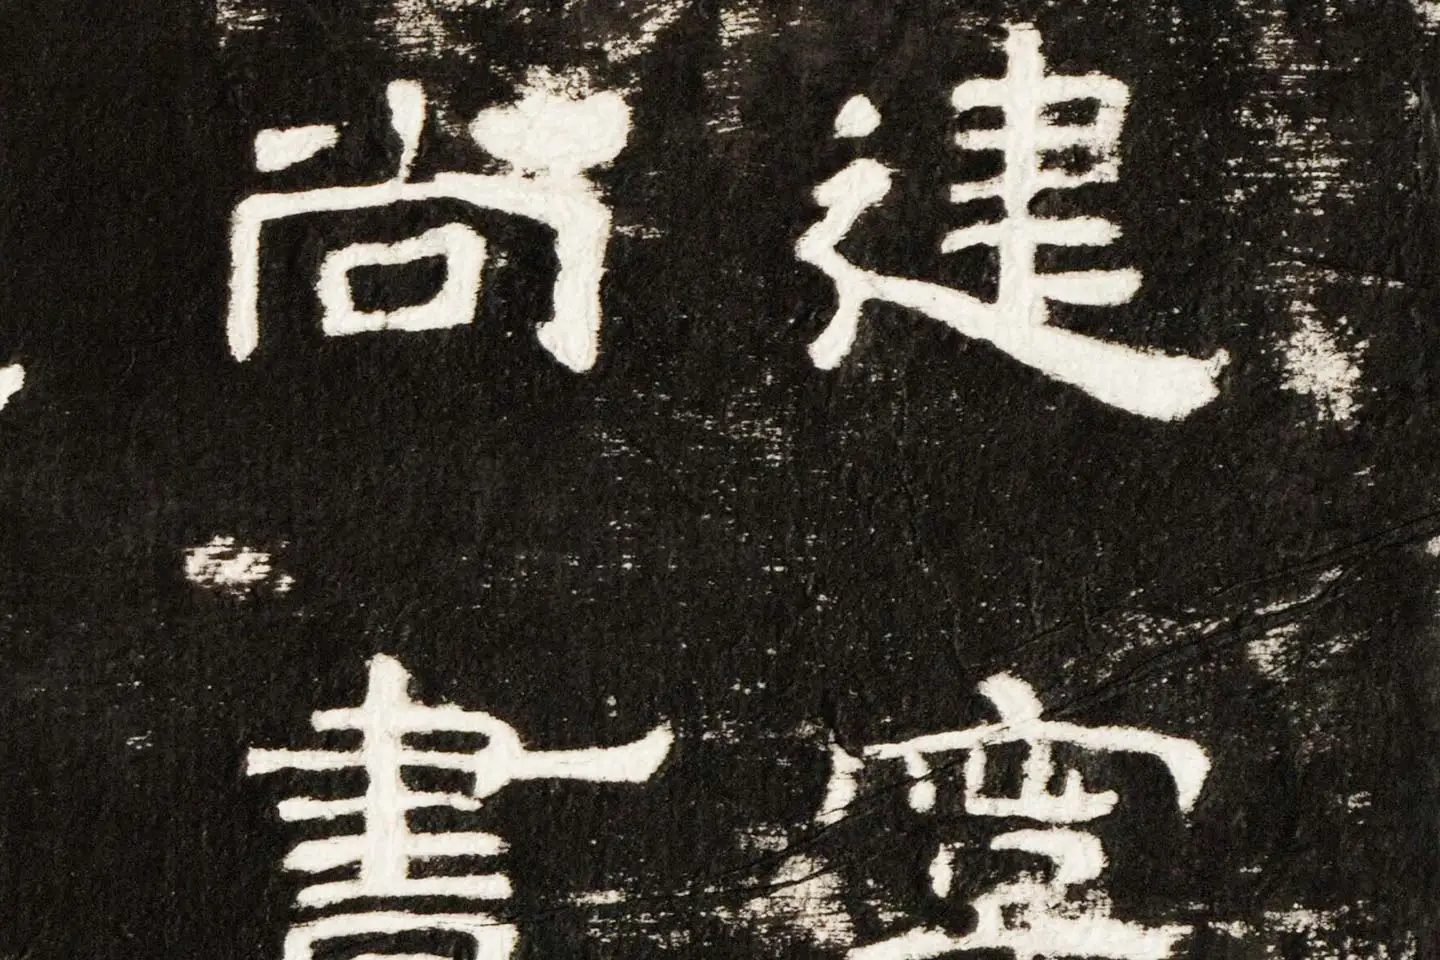 建寧
尚書